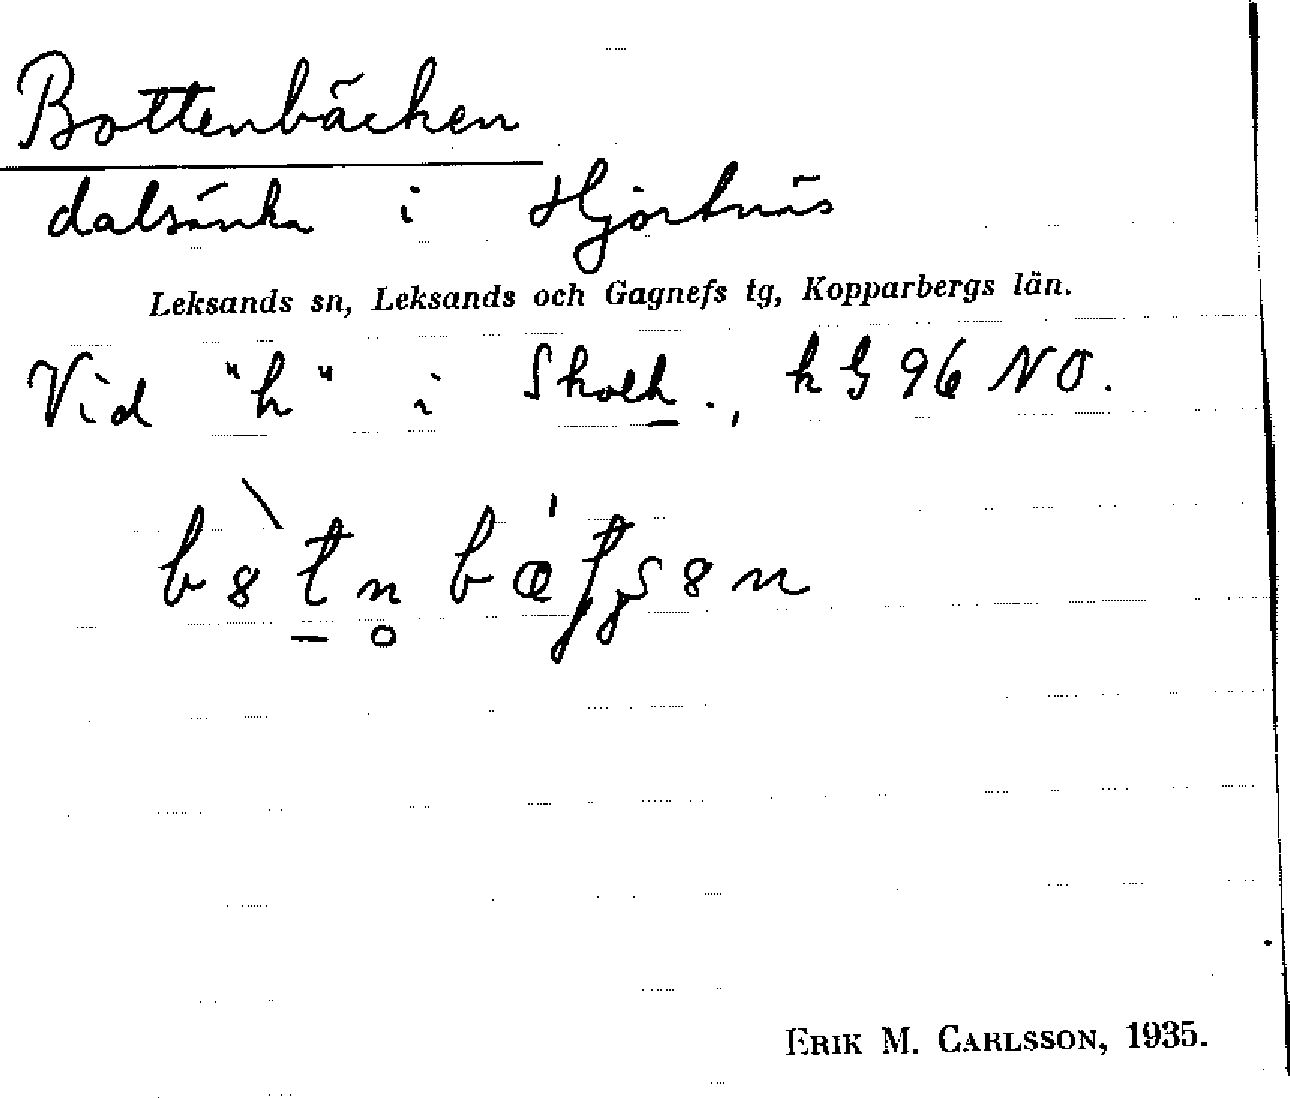 Bottenbäcken
dalsänka i Hjortnäs
Leksands sn, Leksands och Gagnefs tg, Kopparbergs län.
Vid "h" i Skolh., k G 96 NO.
ERIK M. CARLSSON, 1935.